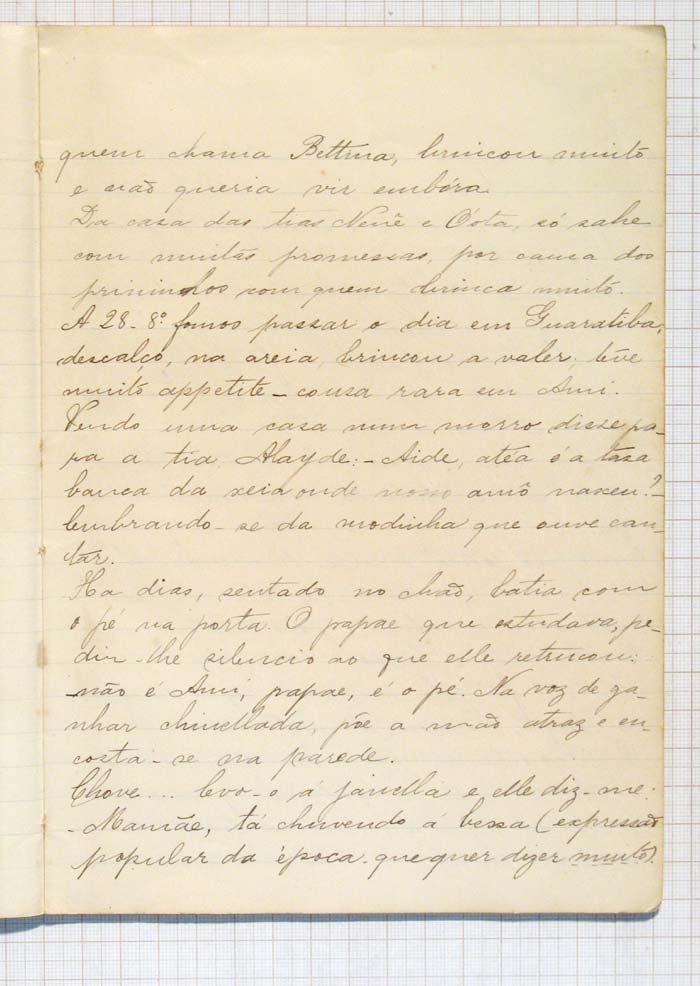 quem chama Bettina, brincou muito
e não queria vir embóra.
Da casa das tias Nenê e Óota, só sahe
com muitas promessas, por causa dos
priminhos com quem brinca muito.
A 28-8º fomos passar o dia em Guaratiba,
descalço, na areia, brincou a valer; têve
muito appetite - cousa rara em Ami.
Vendo uma casa num morro disse pa-
ra a tia Alayde: - Aide, atéa é a tasa
banca da xeia onde nosso amô naxeu? -
lembrando-se da modinha que ouve can-
tar.
Ha dias, sentado no chão, batia com
o pé na porta. O papae que estudava, pe-
diu-lhe silencio ao que elle retrucou:
-não é Ami, papae, é o pé. Na voz de ga-
nhar chinellada, põe a mão atraz e en-
costa-se na parede.
Chove... levo-o á janella e elle diz-me:
-Mamãe, tá chuvendo á bessa (expressão
popular da época que quer dizer muito).